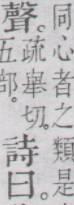 同心者之類是
聲。疏舉切。五部。詩曰。